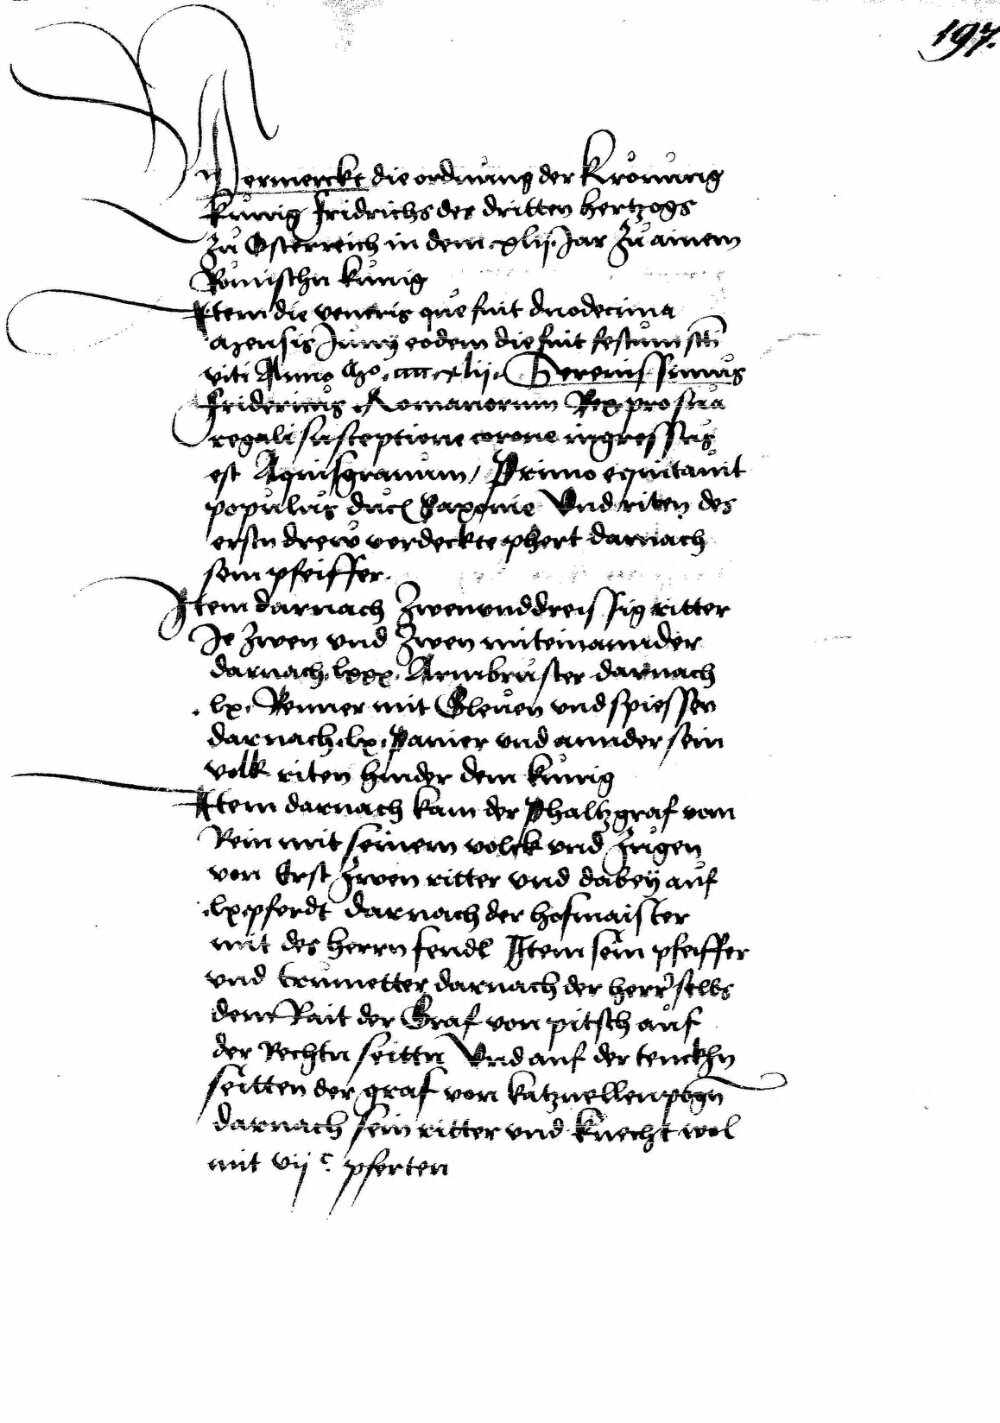 197.
Vermerckt die ordnung der Kronung
kunig fridrichs des dritten hertzogs
zu Osterreich in dem xlij. Jar zu ainem
Romischn kunig
Item die veneris que fuit duodecima
mensis Junij eodem die fuit festum sti
viti Anno mo.cccc.xlij. Serenissimus
fridericus Romanorum Rex pro sua
regali susceptione corone ingressus
est Aquisgranum / Primo equitauit
populus duc Saxonie Vnd riten des
ersten drew verdeckte phert darnach
sein pfeiffer.
Item darnach zwenunddreissig ritter
Je zwen vnd zwen miteinannder
darnach .lxxx. Armbruster darnach
.lx. Renner mit Gleuen vnd spiessen
darnach .lx. Panier vnd annder sein
volk riten hinder dem kunig
Item darnach kam der Phaltzgraf vom
Rein mit seinem volck vnd zugen
von Erst zwen ritter vnd dabey auf
.lx. pferdt darnach der hofmaister
mit des herrn fendl Item sein pfeiffer
vnd trumetter darnach der herr selbs
dem Rait der Graf von pitsch auf
der Rechtn seittn Vnd auf der tenckhn
seitten der graf von katznellenpogn
darnach sein ritter vnd knecht wol
mit vij c. pferten